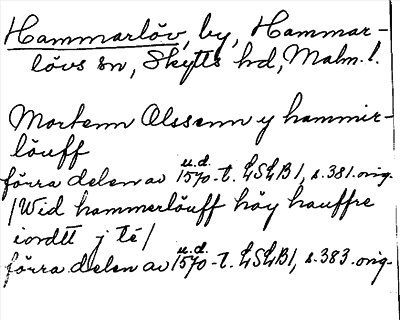 Hammarlöv, by, Hammar-
lövs sn, Skytts hd, Malm. l.
Mortenn Olssenn y hammir-
löuff
förra delen av u.d. 1570-t. LSLB 1, s. 381. orig.
/Wid hammerlöuff höy hauffre
iordtt j té/
förra delen av u.d. 1570-t. LSLB 1, s. 383. orig.